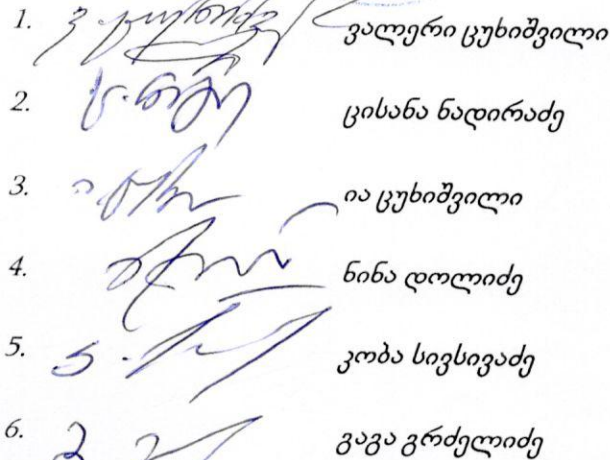 1. ვალერი ცუხიშვილი
2. ცისანა ნადირაძე
3. ია ცუხიშვილი
4. ნინა დოლიძე
5. კობა სივსივაძე
6. გაგა გრძელიძე